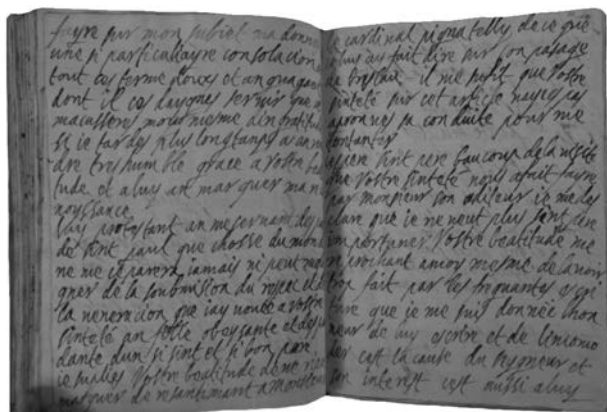 fayre sur mon subiet ma donne
une si particuliayre consolacion
tout ces terme doux et an gua gant
dont il ces daygnes servir que
macusseres mous mesme dingratitud
si ie tardes plus longtanps a
dre tres humble grace a vostre bea
tude et a luy an marquer ma re
noyssance
iay protestant an me servant des
de sint paul que chosse du mon
ne me separera iamais ni peut
gner de la soubmision du respec et d
la veneracion que iay vouee a vostr
sinteté an fille obeysante et des
dante dun si sint et si bon pare
ie suplies Vostre beatitude de ne rien
marquer de resantimant a monsieur
le cardinal pignatelly de ce que
luy ay fait dire sur son pasage
de il me sufit que Vostre
sinteté sur cet article nayes pas
aprouves sa conduite pour me
contanter
sint pere baucoup de la visite
que Vostre sinteté nous a fait fayre
par monsieur son oditeur ie me des
clare que ie ne veut plus sint pere
importuner Vostre beatitude me
reprochant a moy mesme de lavoir
trop fait par les frequantes escri
ture que ie me suis donnée lhon
neur de luy escrire et de linconmo
der cest la cause du seygneur et
son interest cest aussi a luy